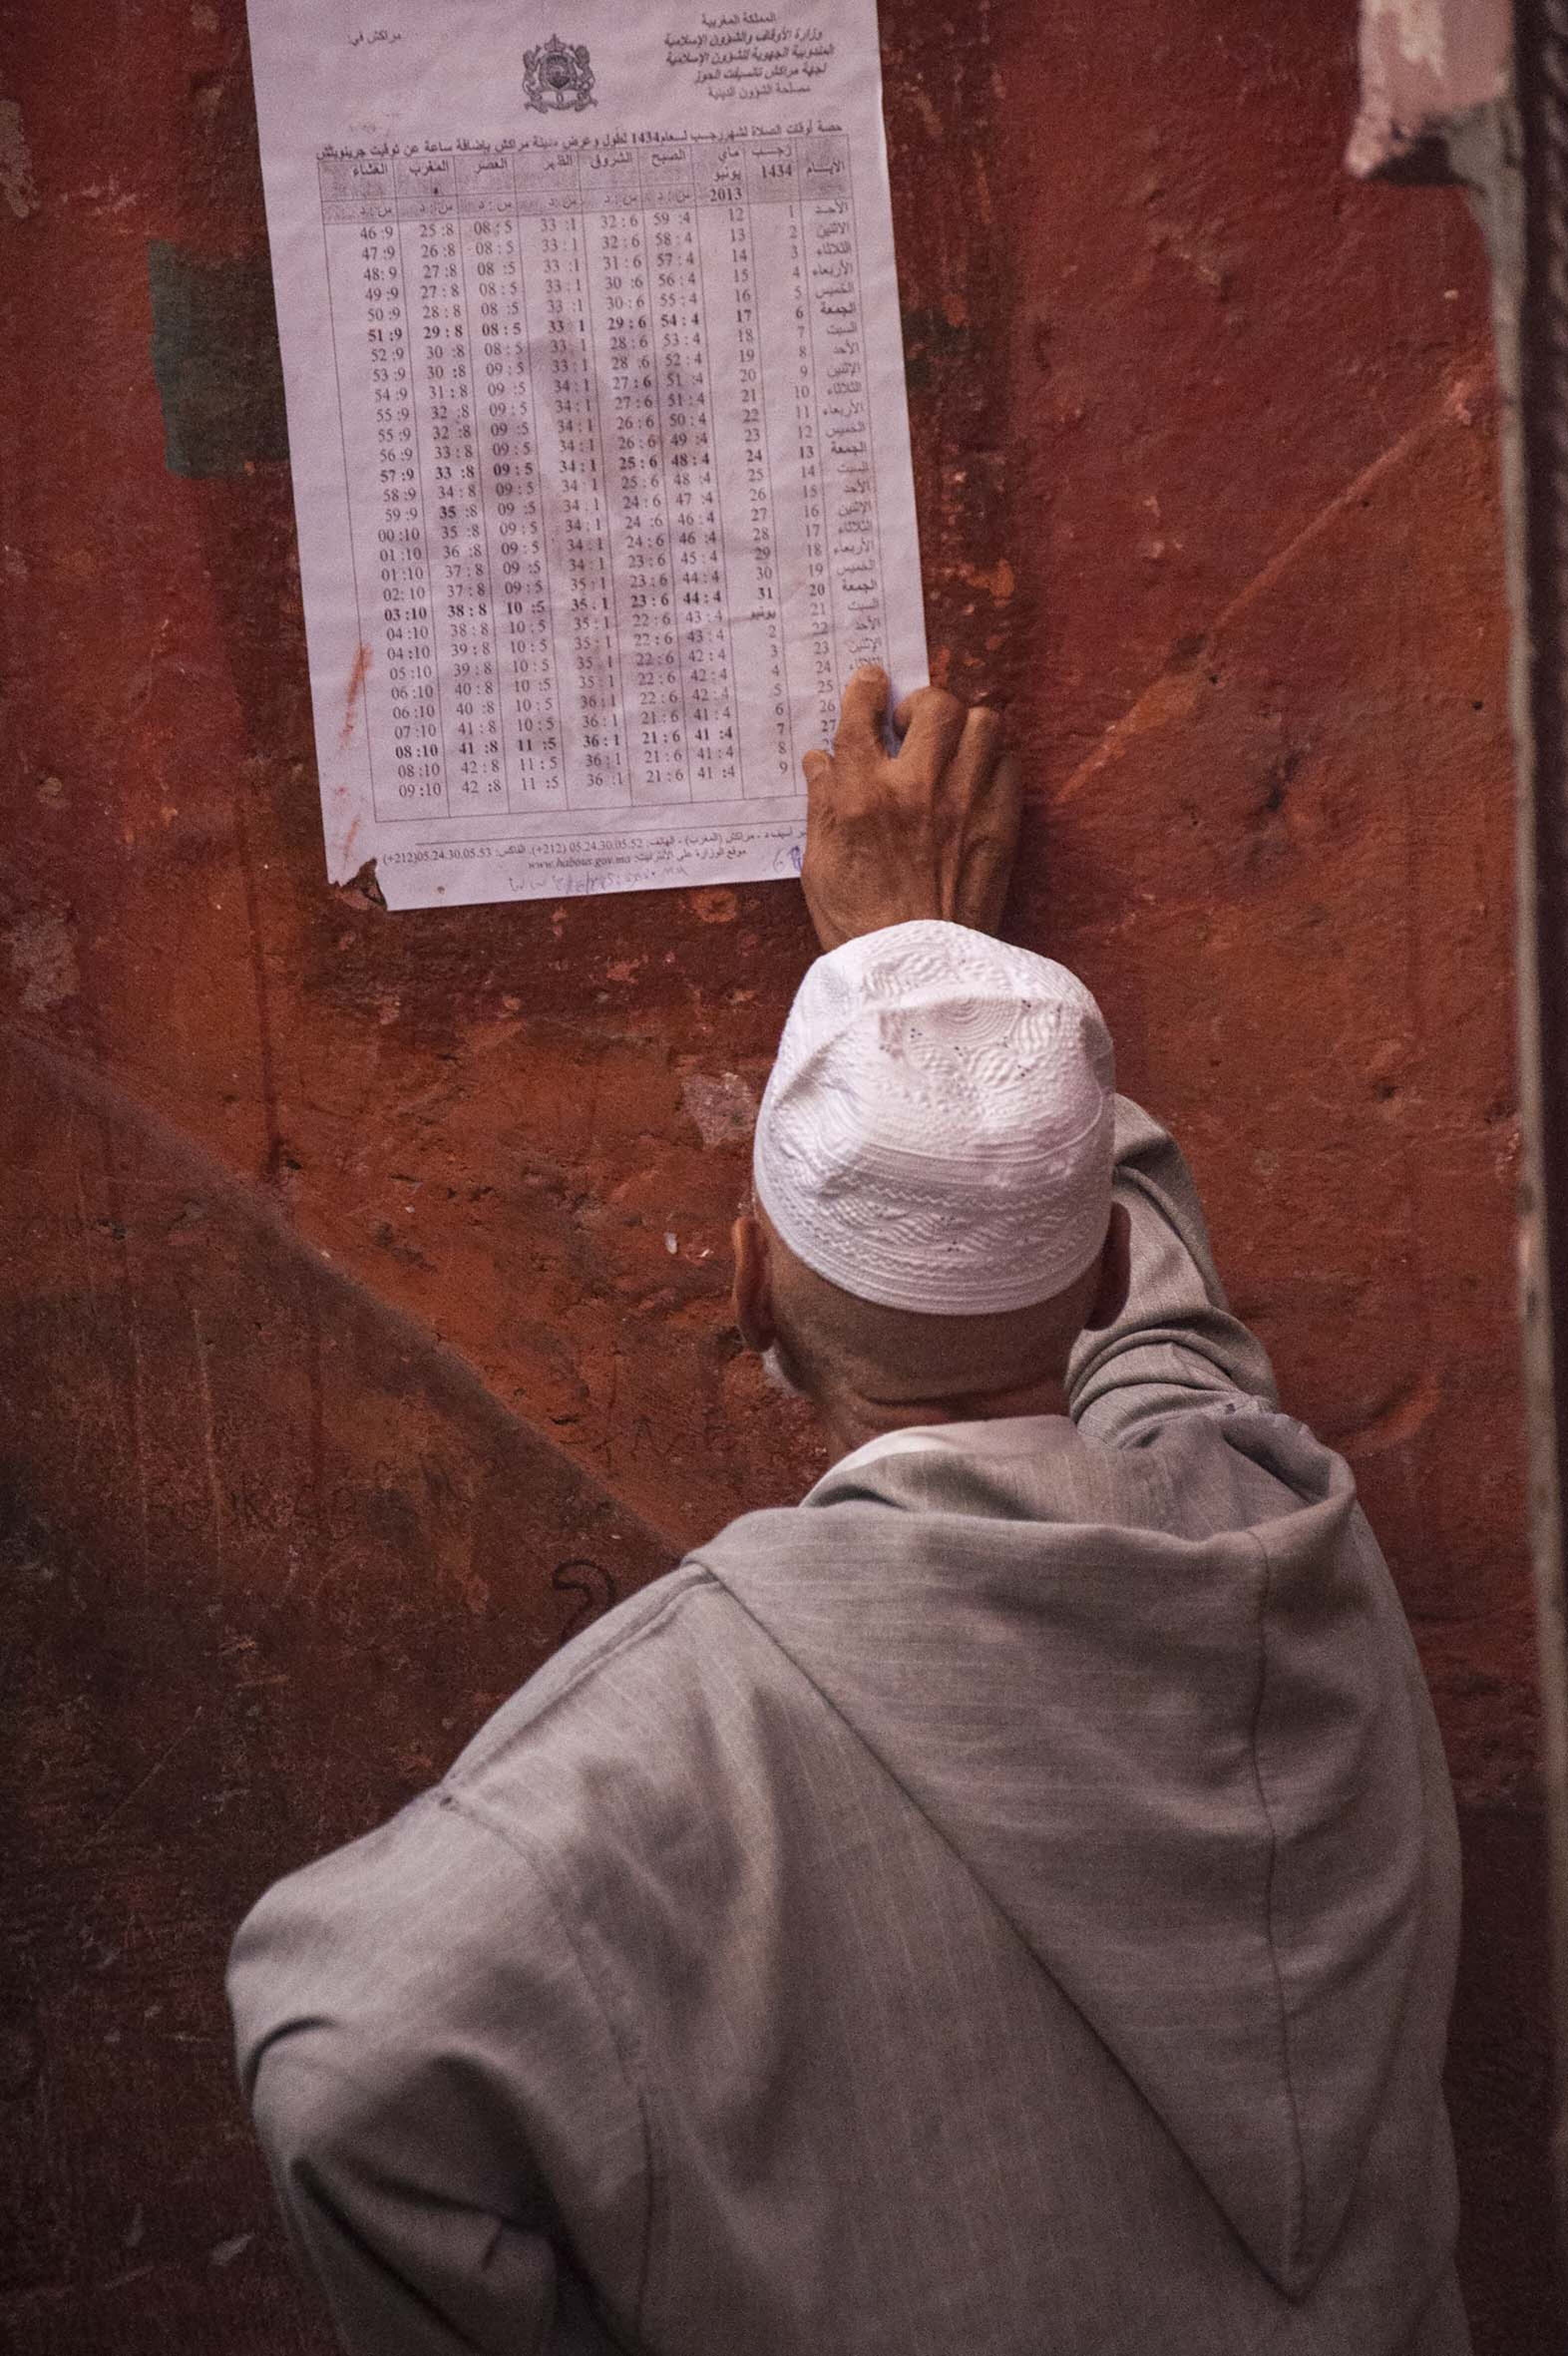 المملكة المغربية
وزارة الأوقاف والشؤون الإسلامية
المندوبية الجهوية للشؤون الإسلامية
لجهة مراكش تانسيفت الحوز
مصلحة الشؤون الدينية
مراكش في:
حصة أوقات الصلاة لشهر رجب لعام 1434 لطول وعرض مدينة مراكش بإضافة ساعة عن توقيت جرينويتش
الأيام رجب 1434 ماي يونيو 2013 الصبح الشروق الظهر العصر المغرب العشاء
س : د س : د س : د س : د س : د س : د
الأحد 1 12 4:59 6:32 1:33 5:08 8:25 9:46
الاثنين 2 13 4:58 6:32 1:33 5:08 8:26 9:47
الثلاثاء 3 14 4:57 6:31 1:33 5:08 8:27 9:48
الأربعاء 4 15 4:56 6:30 1:33 5:08 8:27 9:49
الخميس 5 16 4:55 6:30 1:33 5:08 8:28 9:50
الجمعة 6 17 4:54 6:29 1:33 5:08 8:29 9:51
السبت 7 18 4:53 6:28 1:33 5:08 8:30 9:52
الأحد 8 19 4:52 6:28 1:33 5:09 8:30 9:53
الإثنين 9 20 4:51 6:27 1:34 5:09 8:31 9:54
الثلاثاء 10 21 4:51 6:27 1:34 5:09 8:32 9:55
الأربعاء 11 22 4:50 6:26 1:34 5:09 8:32 9:55
الخميس 12 23 4:49 6:26 1:34 5:09 8:33 9:56
الجمعة 13 24 4:48 6:25 1:34 5:09 8:33 9:57
السبت 14 25 4:48 6:25 1:34 5:09 8:34 9:58
الأحد 15 26 4:47 6:24 1:34 5:09 8:35 9:59
الإثنين 16 27 4:46 6:24 1:34 5:09 8:35 10:00
الثلاثاء 17 28 4:46 6:24 1:34 5:09 8:36 10:01
الأربعاء 18 29 4:45 6:23 1:34 5:09 8:37 10:01
الخميس 19 30 4:44 6:23 1:35 5:09 8:37 10:02
الجمعة 20 31 4:44 6:23 1:35 5:10 8:38 10:03
السبت 21 يونيو 4:43 6:22 1:35 5:10 8:38 10:04
الأحد 22 2 4:43 6:22 1:35 5:10 8:39 10:04
الإثنين 23 3 4:42 6:22 1:35 5:10 8:39 10:05
الثلاثاء 24 4 4:42 6:22 1:35 5:10 8:40 10:06
25 5 4:42 6:22 1:36 5:10 8:40 10:06
26 6 4:41 6:21 1:36 5:10 8:41 10:07
27 7 4:41 6:21 1:36 5:11 8:41 10:08
8 4:41 6:21 1:36 5:11 8:42 10:08
9 4:41 6:21 1:36 5:11 8:42 10:09
أسيف د - مراكش (المغرب) - الهاتف: 05.24.30.05.52 (212+). الفاكس: 05.24.30.05.53(212+)
موقع الوزارة على الأنترنيت: www.habous.gov.ma